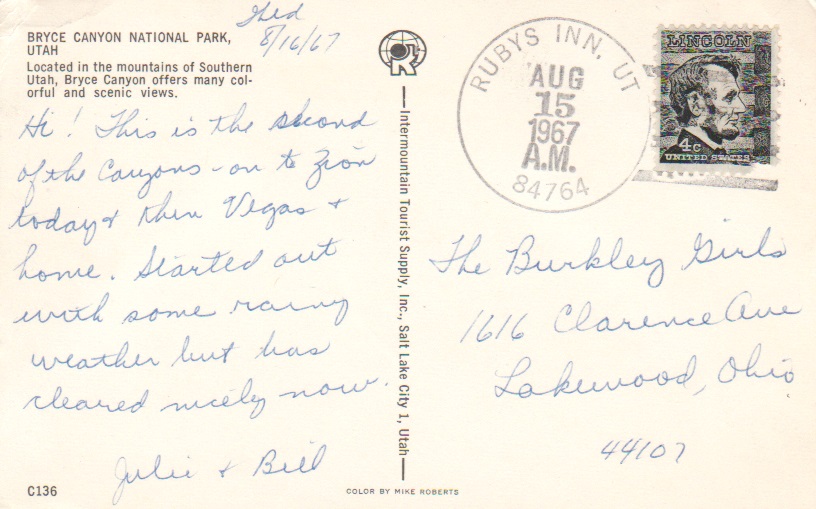 BRYCE CANYON NATIONAL PARK,
UTAH
Located in the mountains of Southern
Utah, Bryce Canyon offers many col-
orful and scenic views.
8/16/67
Hi! This is the second
of the Canyons - on to Zion
today & then Vegas &
home. Started out
with some rainy
weather but has
cleared nicely now.
Julie & Bill
C136
Intermountain Tourist Supply, Inc., Salt Lake City 1, Utah
COLOR BY MIKE ROBERTS
RUBYS INN, UT
AUG
15
1967
A.M.
84764
LINCOLN
4c
UNITED STATES
The Burkley Girls
1616 Clarence Ave
Lakewood, Ohio
44107